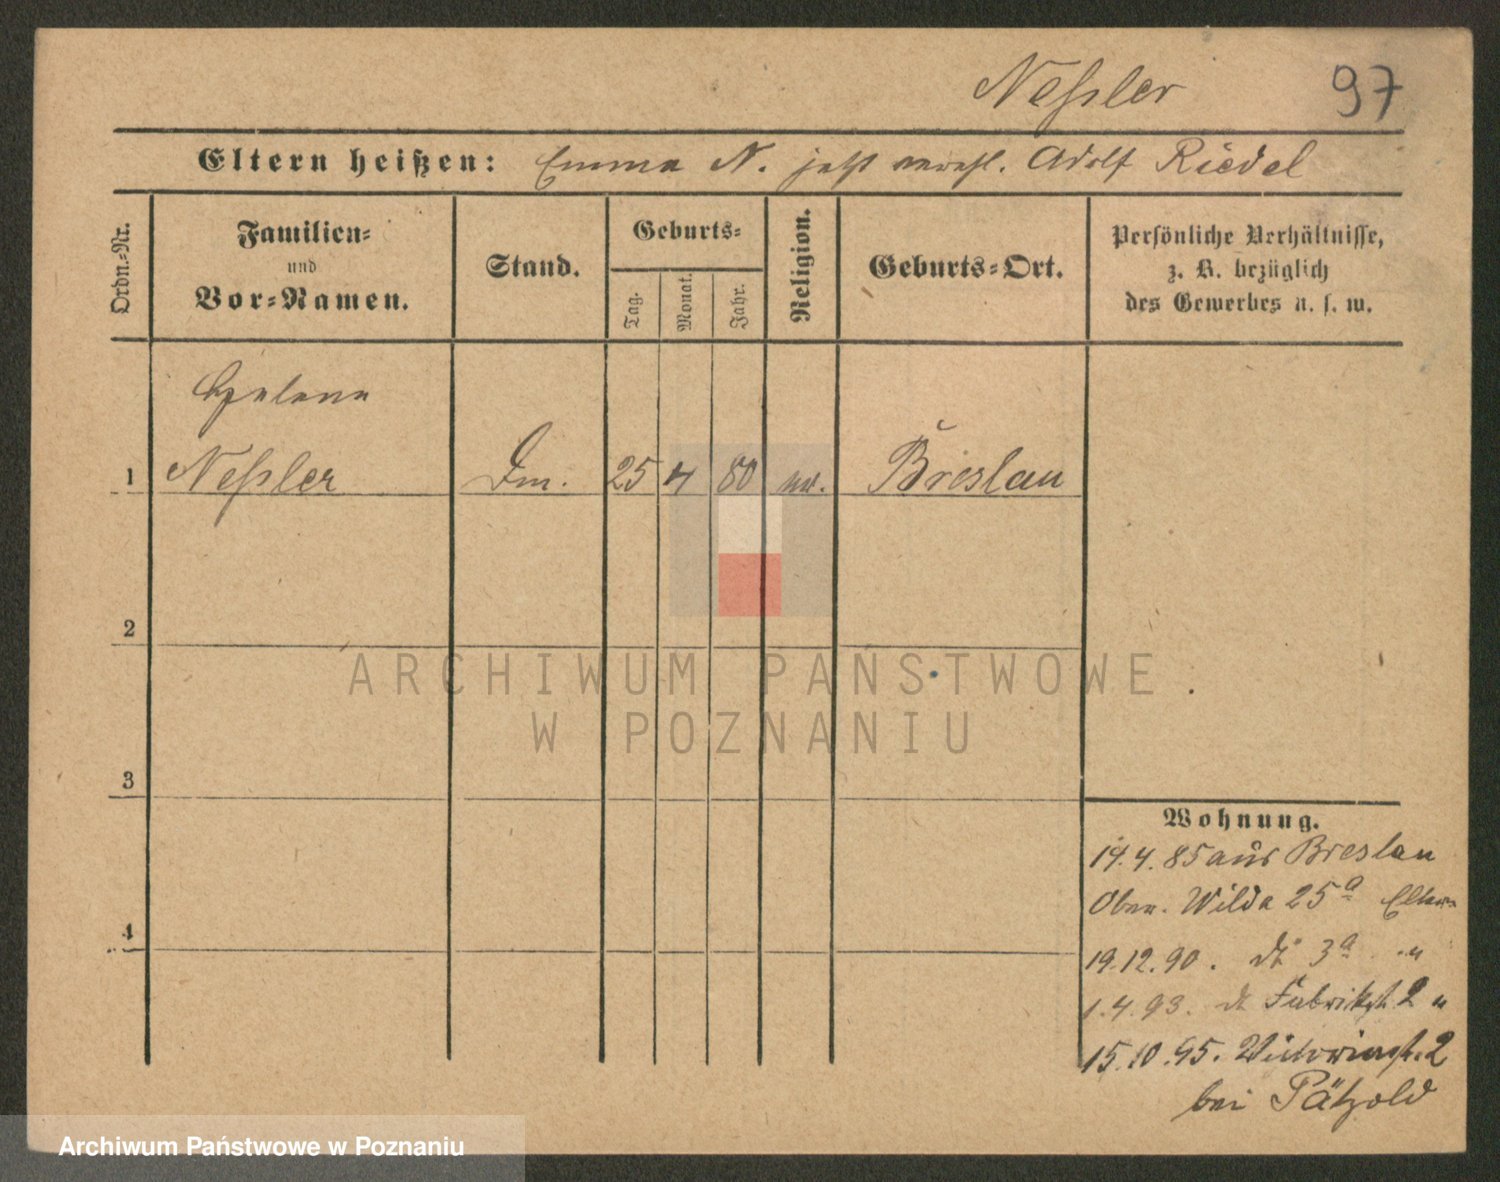 Neßler 97
Eltern heißen: Emma N. jetzt verehl. Adolf Riedel
Ordn.-Nr.
Familien-
und
Vor-Namen.
Stand.
Geburts-
Tag.
Monat.
Jahr.
Religion.
Geburts-Ort.
Persönliche Verhältnisse,
z. B. bezüglich
des Gewerbes u. s. w.
Helene
1 Neßler 25 4 80 ev. Breslau
2
3
4
ARCHIWUM PAŃSTWOWE
W POZNANIU
Wohnung.
19.4.85 aus Breslau
Ober. Wilda 25a Eltern
19.12.90. dt 3a "
1.4.93. dt Fabrikst. 2 "
15.10.95. Victoriast. 2
bei Pätzold
Archiwum Państwowe w Poznaniu